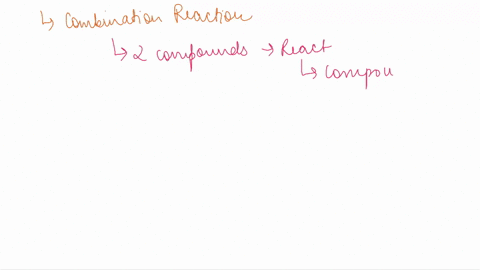 ↳ Combination Reaction
↳ 2 compounds → React
↳ Compou